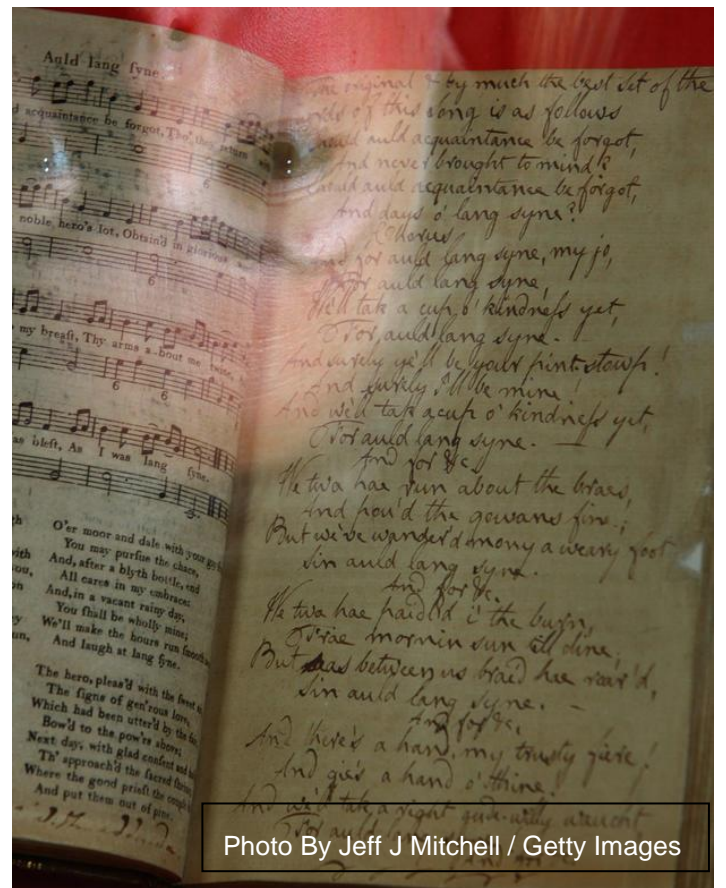 Auld lang ſyne.
d acquaintance be forgot, Tho' they return
noble hero's lot, Obtain'd in glorious
my breaſt, Thy arms a-bout me twine,
as bleſt, As I was lang ſyne.
6
6
6 6
O'er moor and dale with your
You may purſue the chace,
And, after a blyth bottle, end
All cares in my embrace:
And, in a vacant rainy day,
You ſhall be wholly mine;
We'll make the hours run ſmooth
And laugh at lang ſyne.
The hero, pleas'd with the ſweet
The ſigns of gen'rous love,
Which had been utter'd by the fair,
Bow'd to the pow'rs above;
Next day, with glad conſent and
Th' approach'd the ſacred
Where the good prieſt the couple
And put them out of pine.
The original & by much the best set of the
words of this song is as follows
Should auld acquaintance be forgot,
And never brought to mind?
Should auld acquaintance be forgot,
And days o' lang syne?
Chorus
And for auld lang syne, my jo,
For auld lang syne,
We'll tak a cup o' kindneſs yet,
For auld lang syne. –
And surely ye'll be your pint-stowp!
And surely I'll be mine!
And we'll tak a cup o' kindneſs yet,
For auld lang syne. —
And for &c.
We twa hae run about the braes,
And pou'd the gowans fine;
But we've wander'd mony a weary foot
Sin auld lang syne.
And for &c.
We twa hae paidl'd i' the burn,
Frae mornin sun till dine;
But seas between us braid hae roar'd,
Sin auld lang syne. –
And for &c.
And there's a hand, my trusty fiere!
And gie's a hand o' thine!
And we'll tak a right gude-willy waught
For auld lang
Photo By Jeff J Mitchell / Getty Images